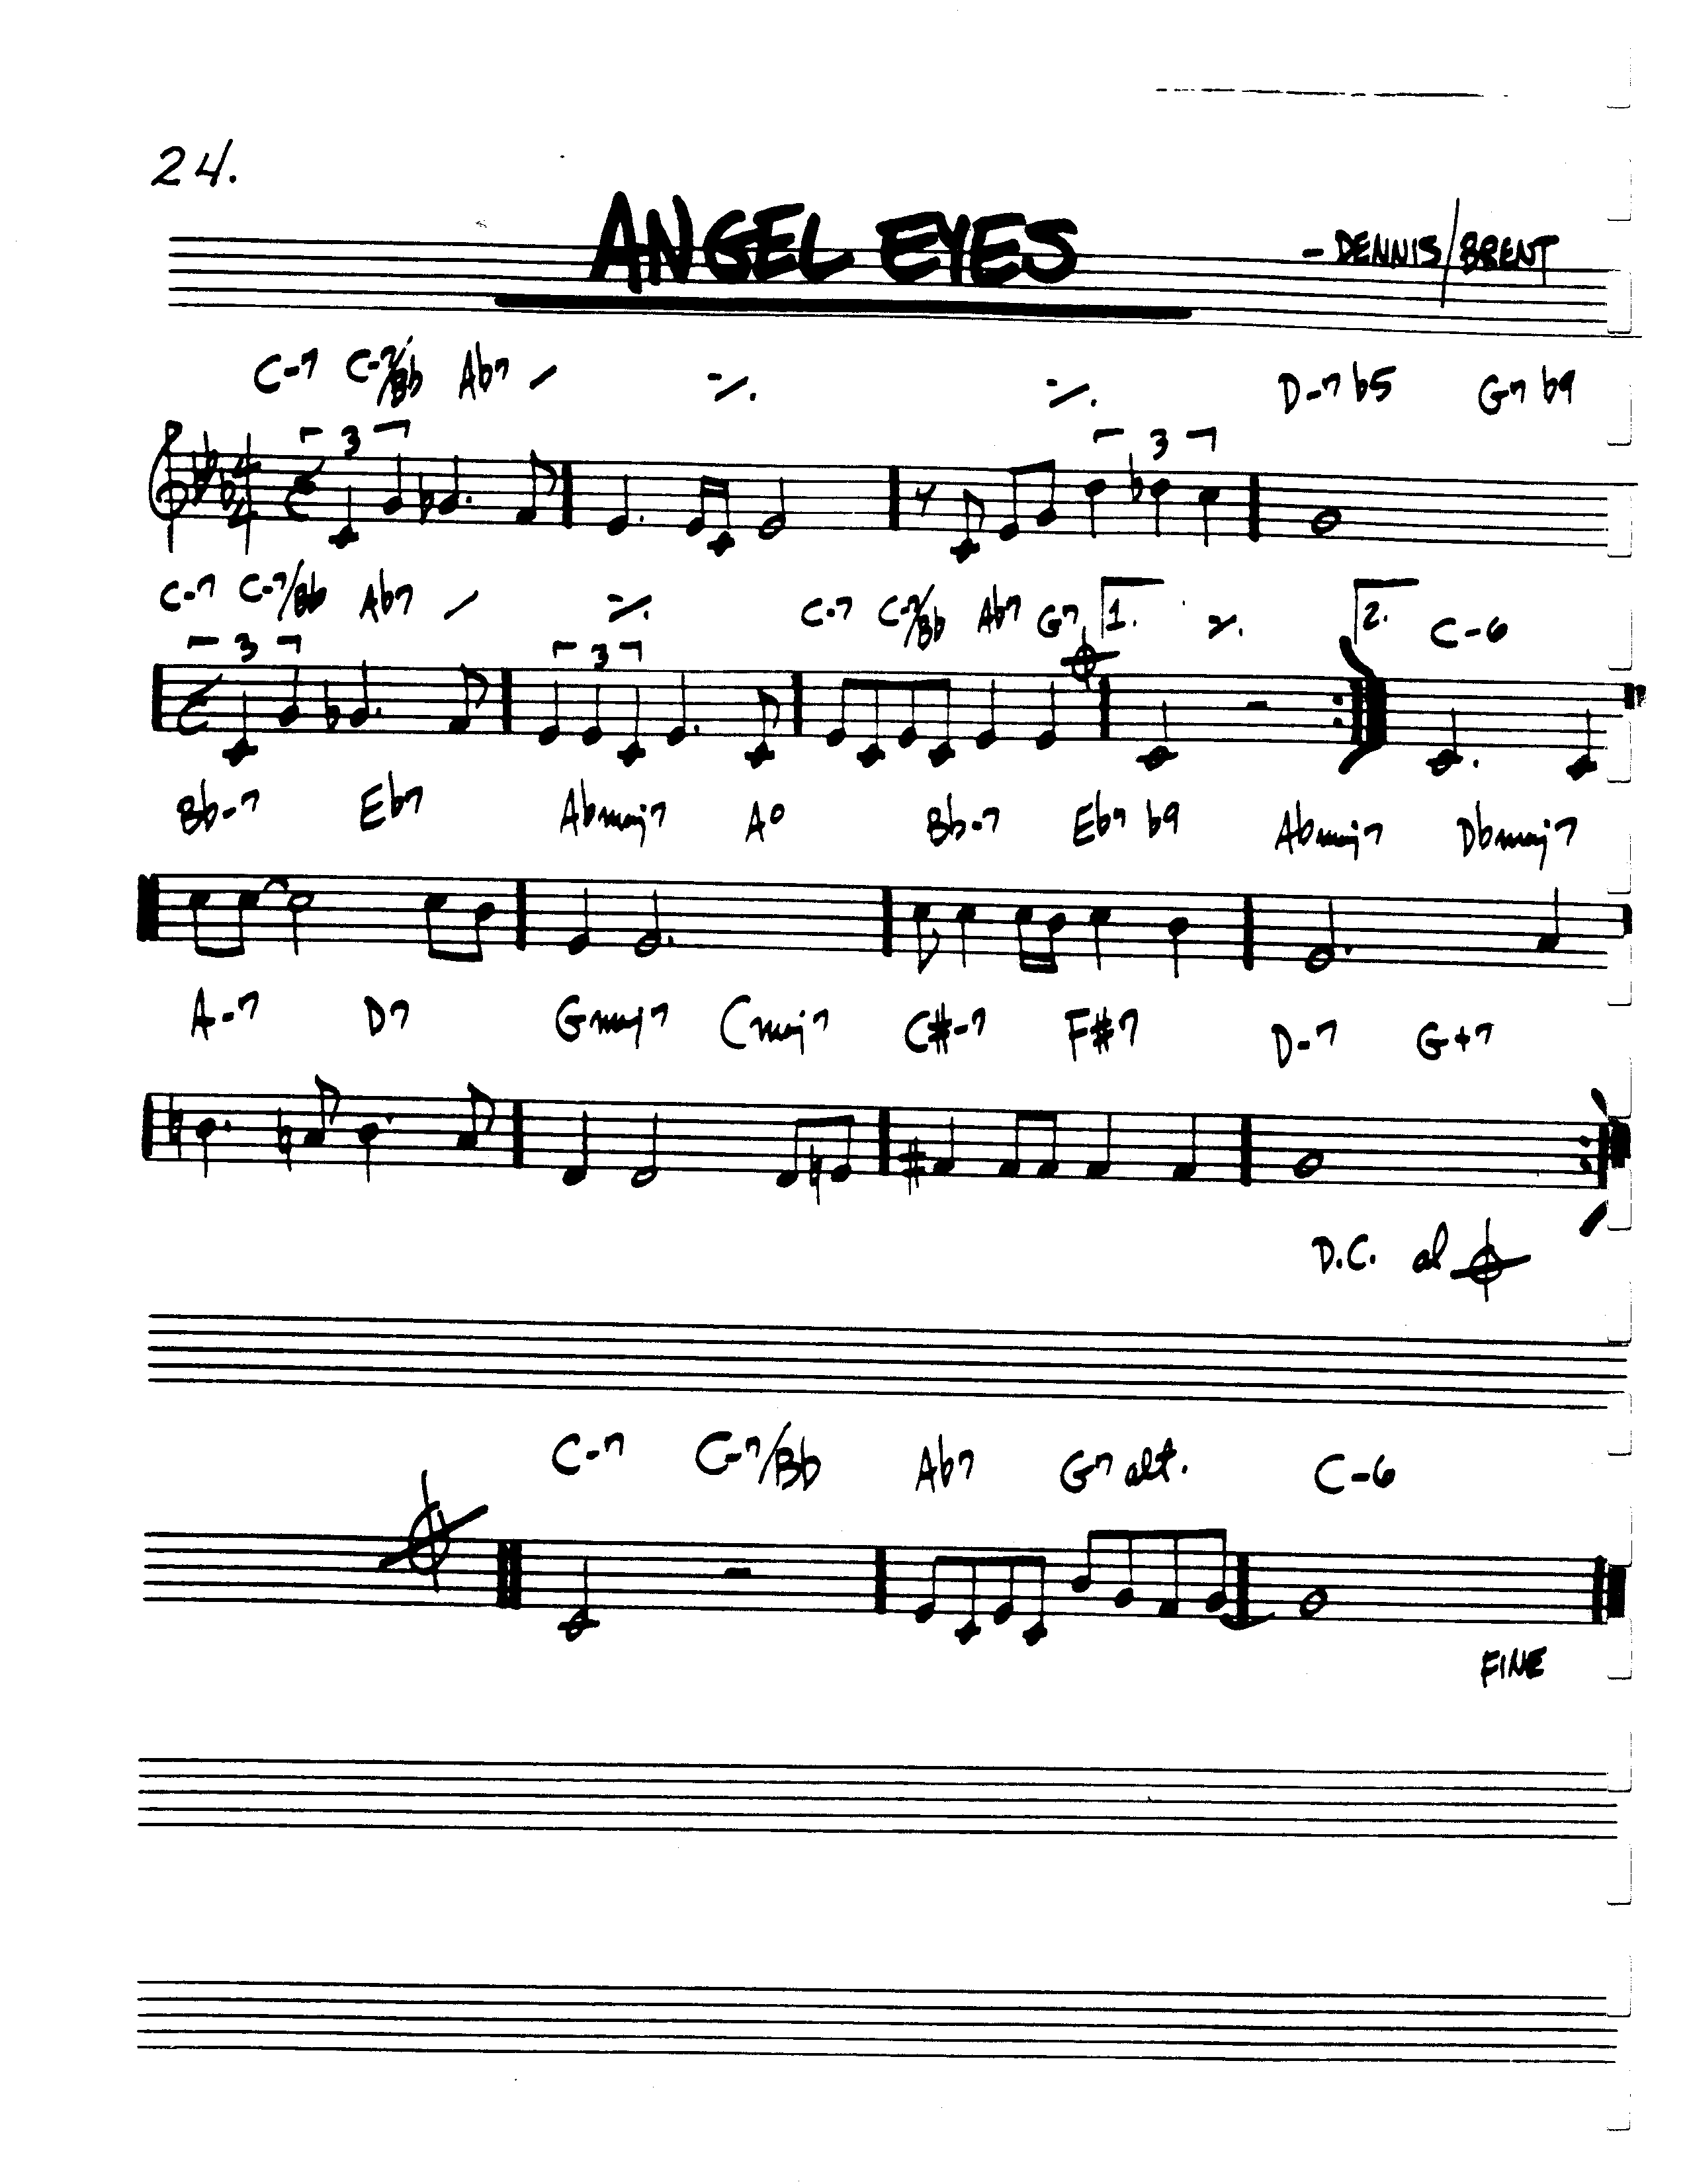 24.
ANGEL EYES
- DENNIS/BRENT
C-7 C-7/Bb Ab7 / ٪ ٪ D-7b5 G7b9
3 3
4
4
C-7 C-7/Bb Ab7 / ٪ C-7 C-7/Bb Ab7 G7 1. ٪ 2. C-6
3 3
Bb-7 Eb7 Abmaj7 Ao Bb-7 Eb7 b9 Abmaj7 Dbmaj7
A-7 D7 Gmaj7 Cmaj7 C#-7 F#7 D-7 G+7
D.C. al
C-7 C-7/Bb Ab7 G7 alt. C-6
FINE